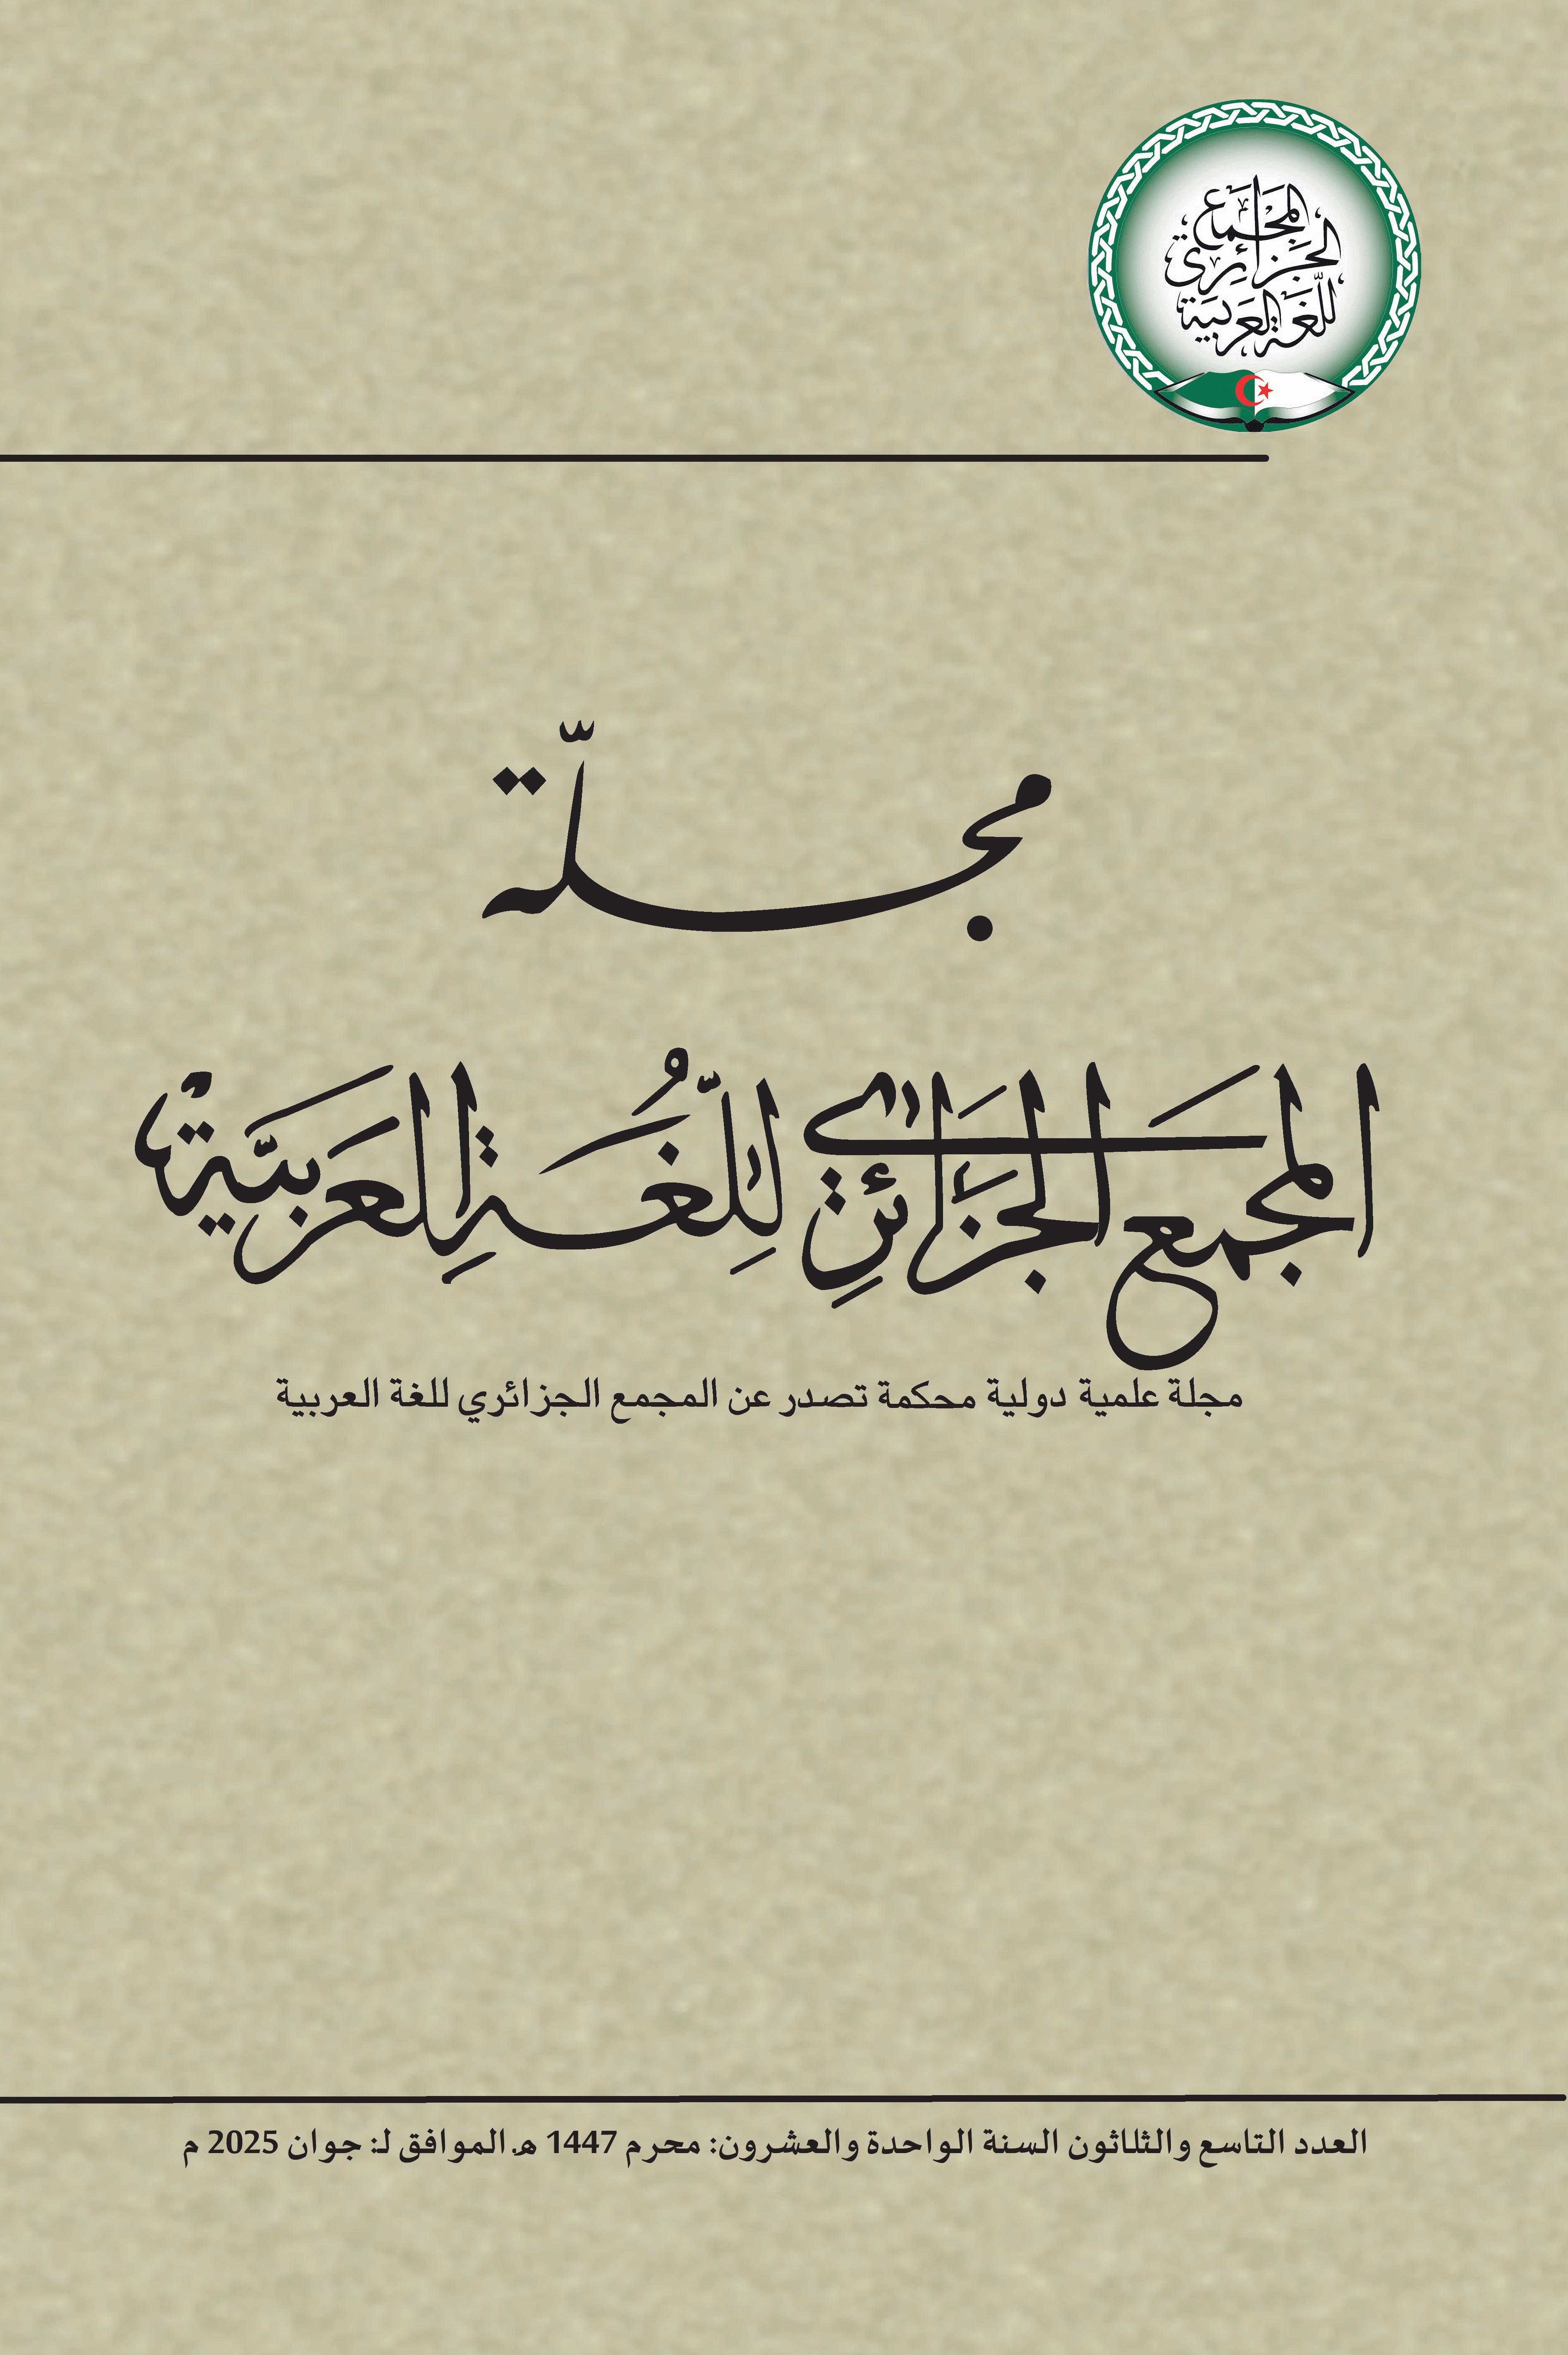 المجمع
الجزائري
للّغة العربية
مجلّة
المجمع الجزائري للّغة العربيّة
مجلة علمية دولية محكمة تصدر عن المجمع الجزائري للغة العربية
العدد التاسع والثلاثون السنة الواحدة والعشرون: محرم 1447 هـ الموافق لـ: جوان 2025 م